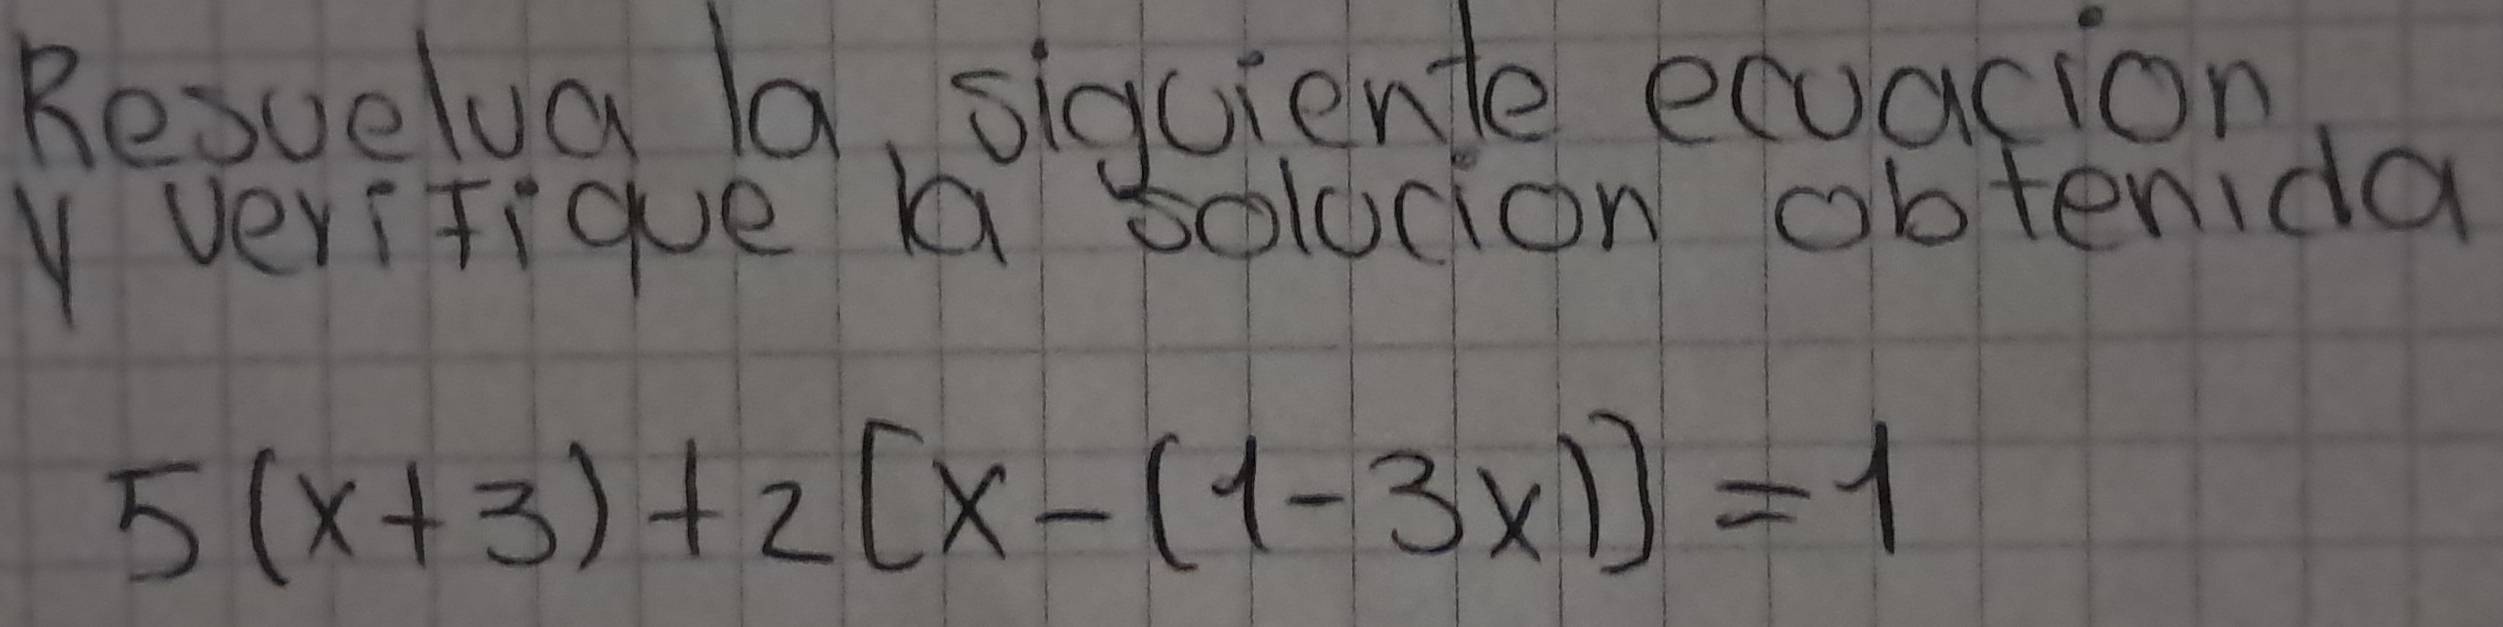 Resuelva la siguiente ecuacion
y verifique la solucion obtenida
5(x+3)+2[x-(1-3x)]=1